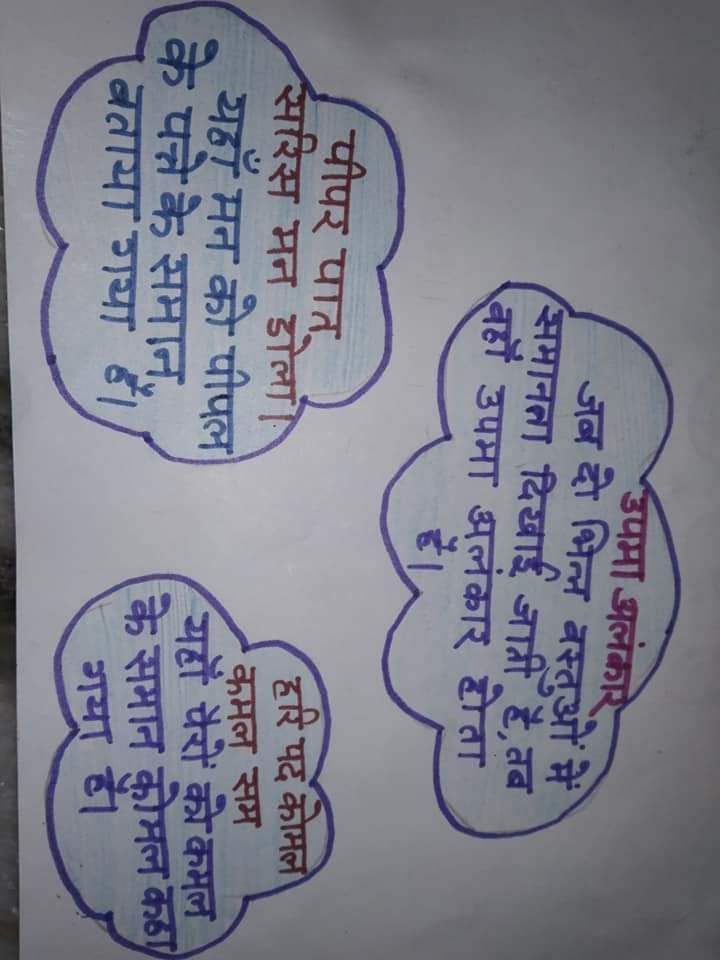 उपमा अलंकार
जब दो भिन्न वस्तुओं में
समानता दिखाई जाती हैं, तब
वहाँ उपमा अलंकार होता
हैं।
पीपर पात
सरिस मन डोला।
यहाँ मन को पीपल
के पत्ते के समान
बताया गया हैं।
हरि पद कोमल
कमल सम
यहाँ पैरों को कमल
के समान कोमल कहा
गया हैं।